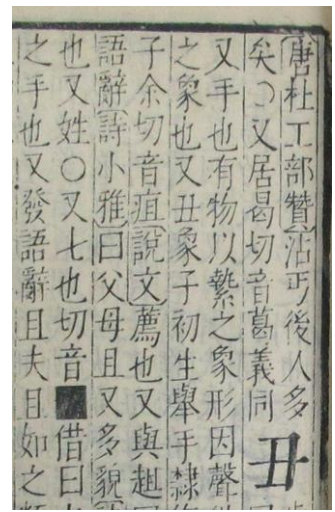 唐杜工部贊沾丐後人多
矣○又居曷切音葛義同 丑
又手也有物以縶之象形因聲
之象也又丑象子初生舉手隸
子余切音疽說文薦也又與趄
語辭詩小雅曰父母且又多貌
也又姓○又七也切音■借曰
之手也又發語辭且夫且如之